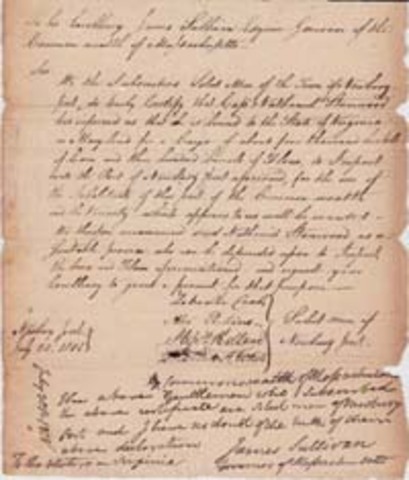 To his Excellency James Sullivan Esquire Governor of the
Common wealth of Massachusetts
Sir
We the Subscribers Select Men of the Town of Newbury
Port, do hereby Certify that Capt Nathaniel Stanwood
has informed us that he is bound to the State of Virginia
or Maryland for a Cargo of about four thousand bushels
of Corn and three hundred barrels of Flour, to Import
into the Port of Newbury Port aforesaid, for the use of
the Inhabitants of this part of the Common wealth
and the Country which appears to us will be wanted
We therefore recommend said Nathaniel Stanwood as a
suitable person who can be depended upon to Import
the Corn and Flour aforementioned and request your
Excellency to grant a permit for that purpose
Select men of
Newbury Port.
Newbury Port
July 1808
Commonwealth of Massachusetts
The above Gentlemen who Subscribed
the above certificate are Select men of Newbury
Port and I have no doubt of the truth of their
above declaration
James Sullivan
Governor of Massachusetts
To the states of Virginia